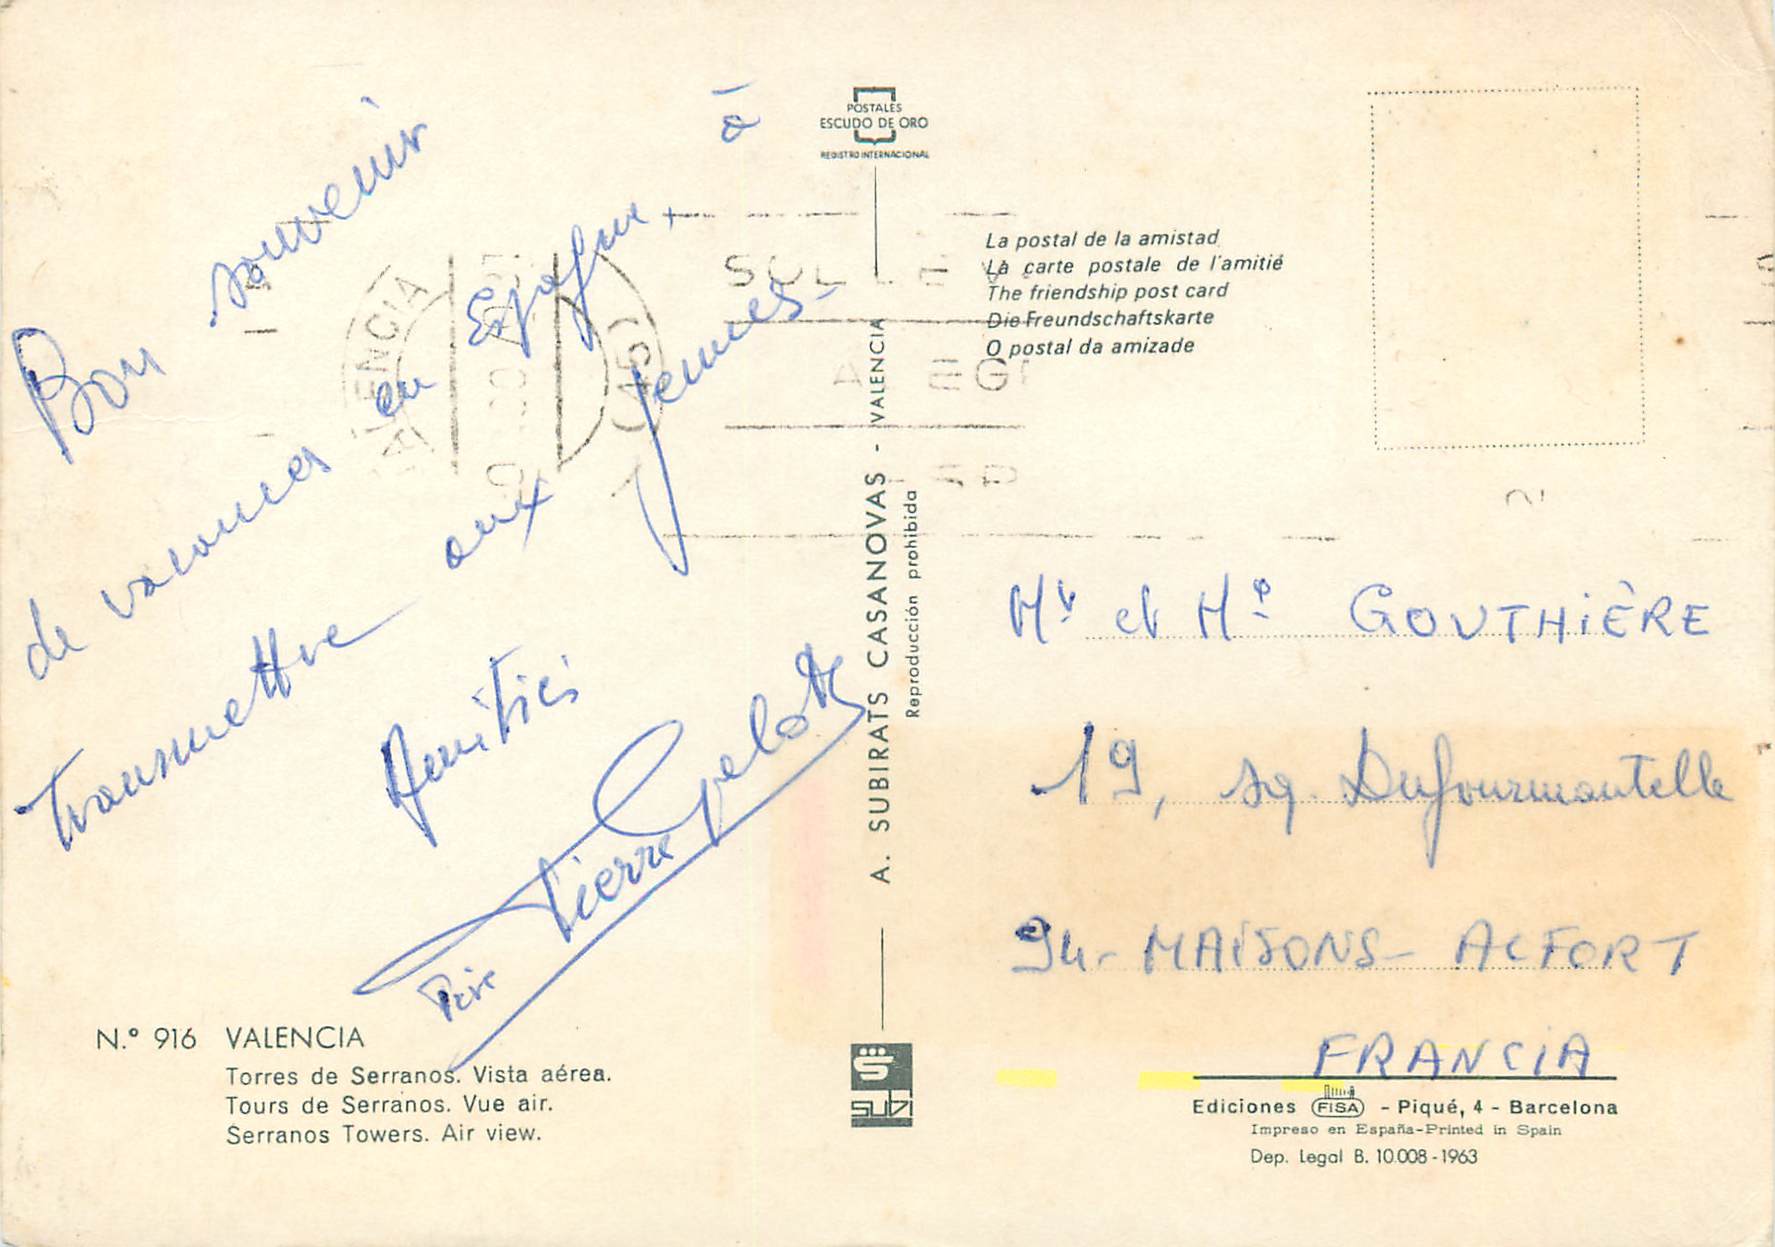 Bon souvenir
de vacances en Espagne, à
Transmettre aux jeunes-
Amitiés
Pierre
N.º 916 VALENCIA
Torres de Serranos. Vista aérea.
Tours de Serranos. Vue air.
Serranos Towers. Air view.
POSTALES
ESCUDO DE ORO
REGISTRO INTERNACIONAL
A. SUBIRATS CASANOVAS - VALENCIA
Reproducción prohibida
SUBI
VALENCIA
La postal de la amistad
La carte postale de l'amitié
The friendship post card
Die Freundschaftskarte
O postal da amizade
Mr et Me GOUTHIÈRE
19, sq. Dufourmantelle
94- MAISONS- ALFORT
FRANCIA
Ediciones FISA - Piqué, 4 - Barcelona
Impreso en España-Printed in Spain
Dep. Legal B. 10.008-1963